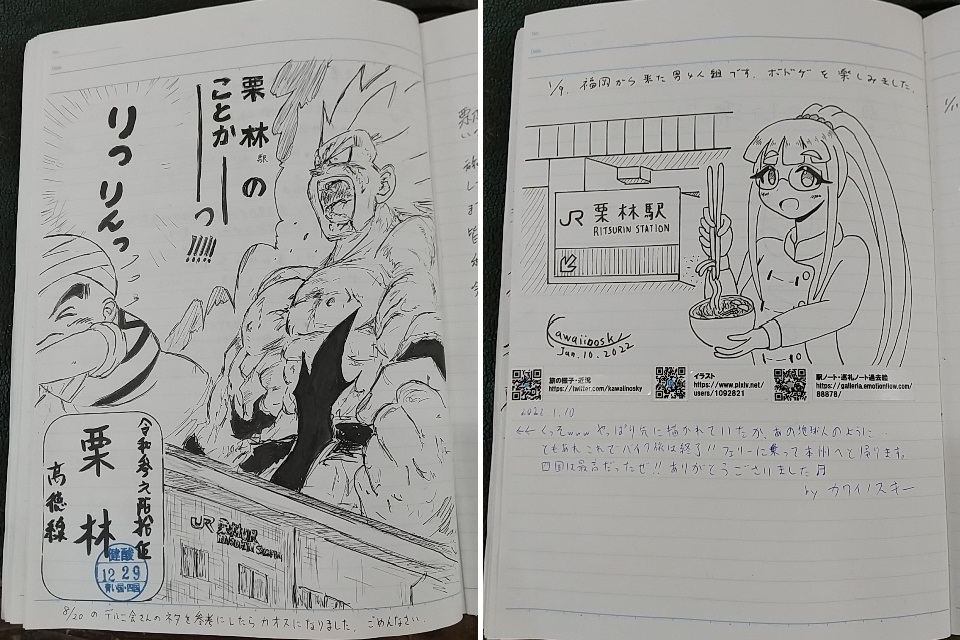 栗林駅の
ことかーーっ!!!!!
りつりんっ
令和参
栗林
高徳線
健酸
12 29
青い国・四国
JR 栗林駅
8/20 の デルニ会さんのネタを参考にしたらカオスになりました。ごめんなさい。
1/9. 福岡から来た男4人組です。ボドゲを楽しみました。
JR 栗林駅
RITSURIN STATION
Kawaiinosky
Jan.10.2022
旅の様子・近況
https://twitter.com/kawaiinosky
イラスト
https://www.pixiv.net/
users/1092821
駅ノート・巡礼ノート過去絵
https://galleria.emotionflow.com/
88878/
2022.1.10
←← くっそwww やっぱり先に描かれていたか、あの地球人のように…
ともあれこれでバイク旅は終了!! フェリーに乗って本州へと帰ります。
四国は最高だったぜ!! ありがとうございました♬
by カワイノスキー